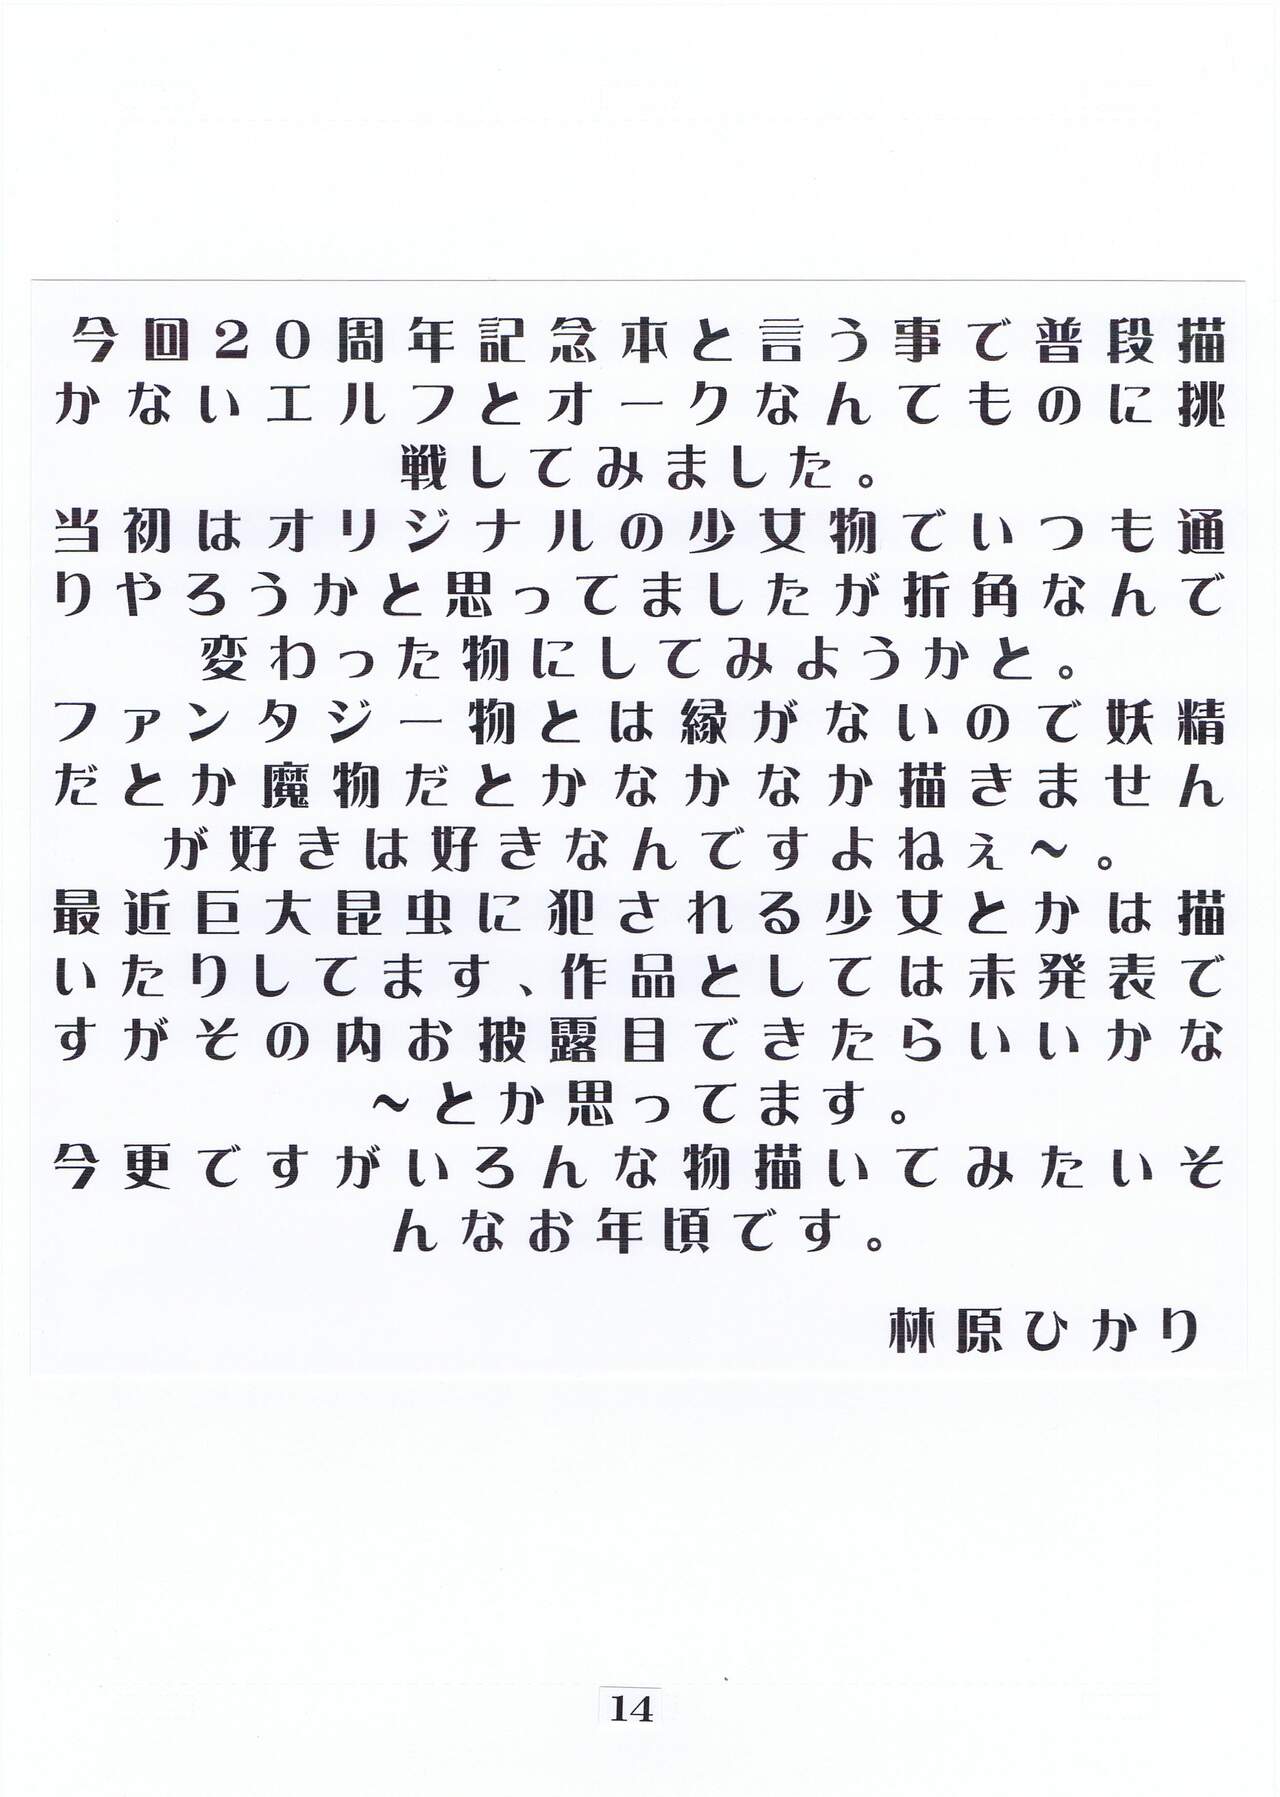 今回20周年記念本と言う事で普段描
かないエルフとオークなんてものに挑
戦してみました。
当初はオリジナルの少女物でいつも通
りやろうかと思ってましたが折角なんで
変わった物にしてみようかと。
ファンタジー物とは縁がないので妖精
だとか魔物だとかなかなか描きません
が好きは好きなんですよねぇ～。
最近巨大昆虫に犯される少女とかは描
いたりしてます、作品としては未発表で
すがその内お披露目できたらいいかな
～とか思ってます。
今更ですがいろんな物描いてみたいそ
んなお年頃です。
林原ひかり
14